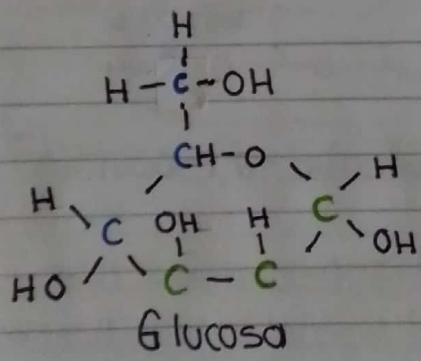 H
H-C-OH
CH-O
H C OH H C H
HO C - C OH
Glucosa